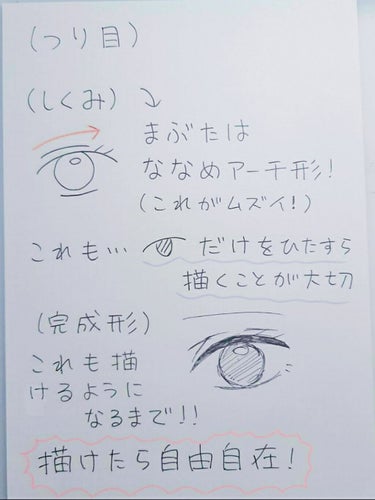 (つり目)
(しくみ)
まぶたは
ななめアーチ形!
(これがムズイ!)
これも… だけをひたすら
描くことが大切
(完成形)
これも描
けるように
なるまで!!
描けたら自由自在!